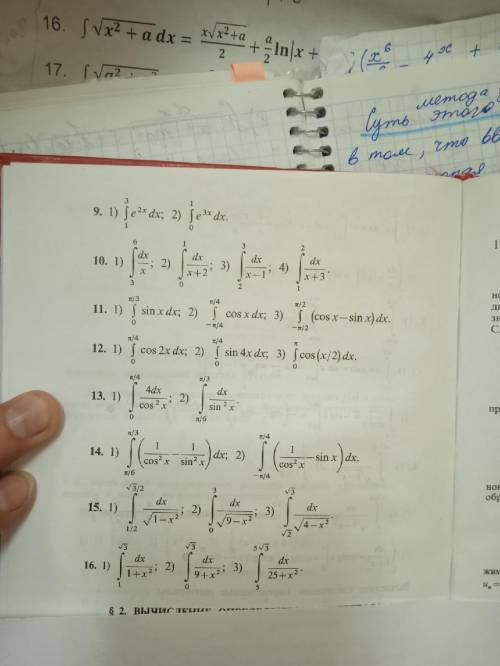 16. ∫√(x² + a) dx = x√(x²+a)/2 + a/2 ln|x +
17. ∫√(a²
(x⁶ − 4ˣ +
метода
Суть этого
в том, что вв
9. 1) ∫₁³ e²ˣ dx; 2) ∫₀¹ e³ˣ dx.
10. 1) ∫₃⁶ dx/x; 2) ∫₀¹ dx/(x+2); 3) ∫₂³ dx/(x−1); 4) ∫₁² dx/(x+3).
11. 1) ∫₀^(π/3) sin x dx; 2) ∫_(−π/4)^(π/4) cos x dx; 3) ∫_(−π/2)^(π/2) (cos x − sin x) dx.
12. 1) ∫₀^(π/4) cos 2x dx; 2) ∫₀^(π/4) sin 4x dx; 3) ∫₀^π cos (x/2) dx.
13. 1) ∫₀^(π/4) 4dx/cos² x; 2) ∫_(π/6)^(π/3) dx/sin² x.
14. 1) ∫_(π/6)^(π/3) (1/cos² x − 1/sin² x) dx; 2) ∫_(−π/4)^(π/4) (1/cos² x − sin x) dx.
15. 1) ∫_(1/2)^(√3/2) dx/√(1−x²); 2) ∫₀³ dx/√(9−x²); 3) ∫_(√2)^(√3) dx/√(4−x²).
16. 1) ∫₁^(√3) dx/(1+x²); 2) ∫₀^(√3) dx/(9+x²); 3) ∫₅^(5√3) dx/(25+x²).
§ 2. ВЫЧИСЛЕНИЕ